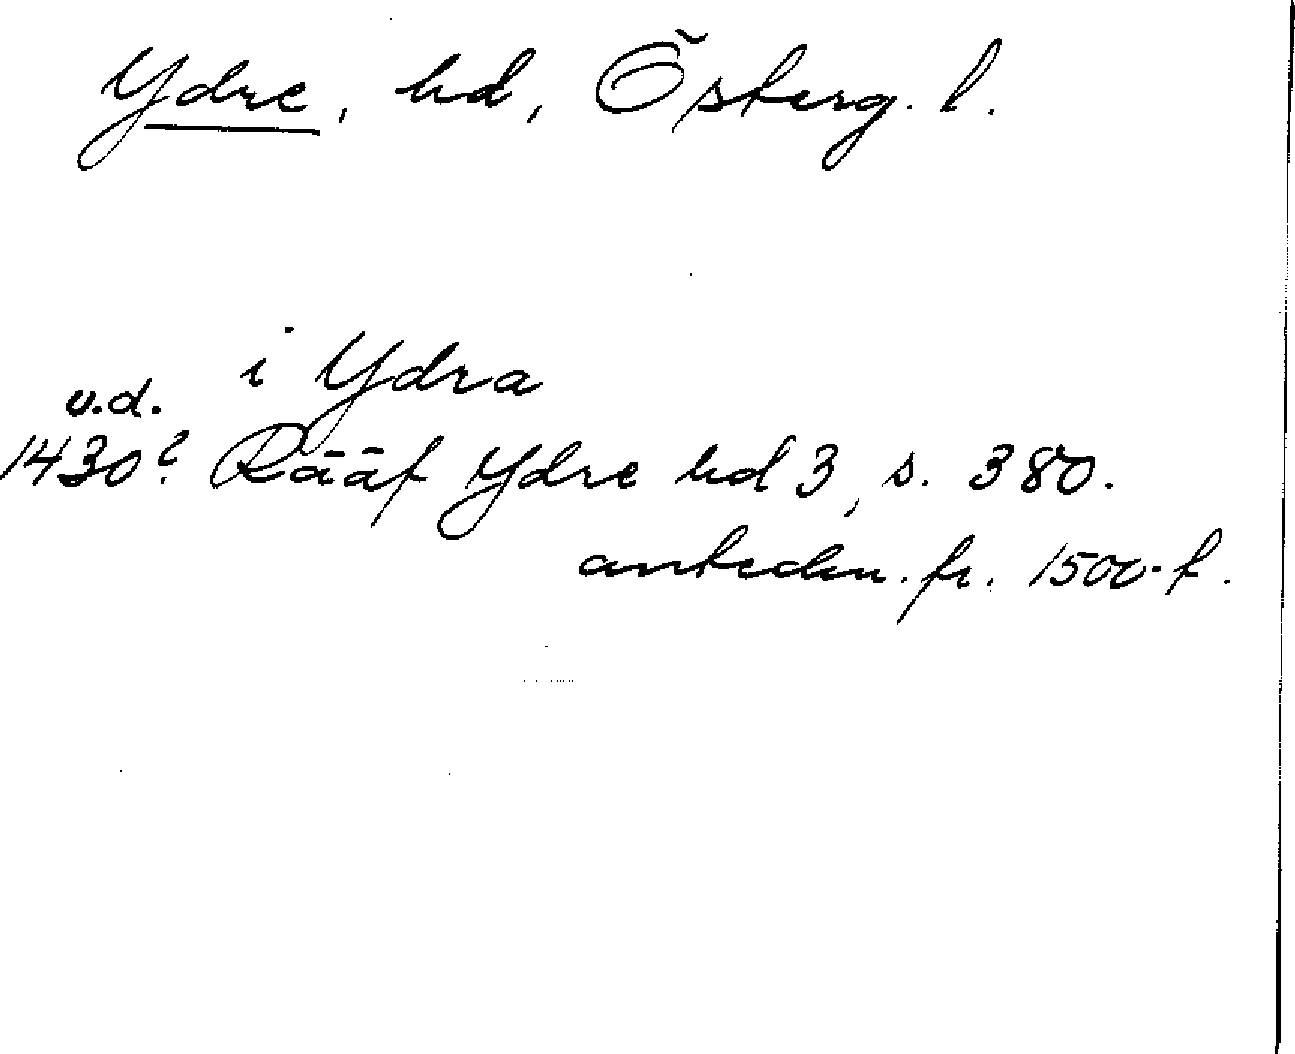 Ydre, hd, Österg. l.
i Ydra
u.d.
1430? Rääf Ydre hd 3, s. 380.
anteckn. fr. 1500-t.